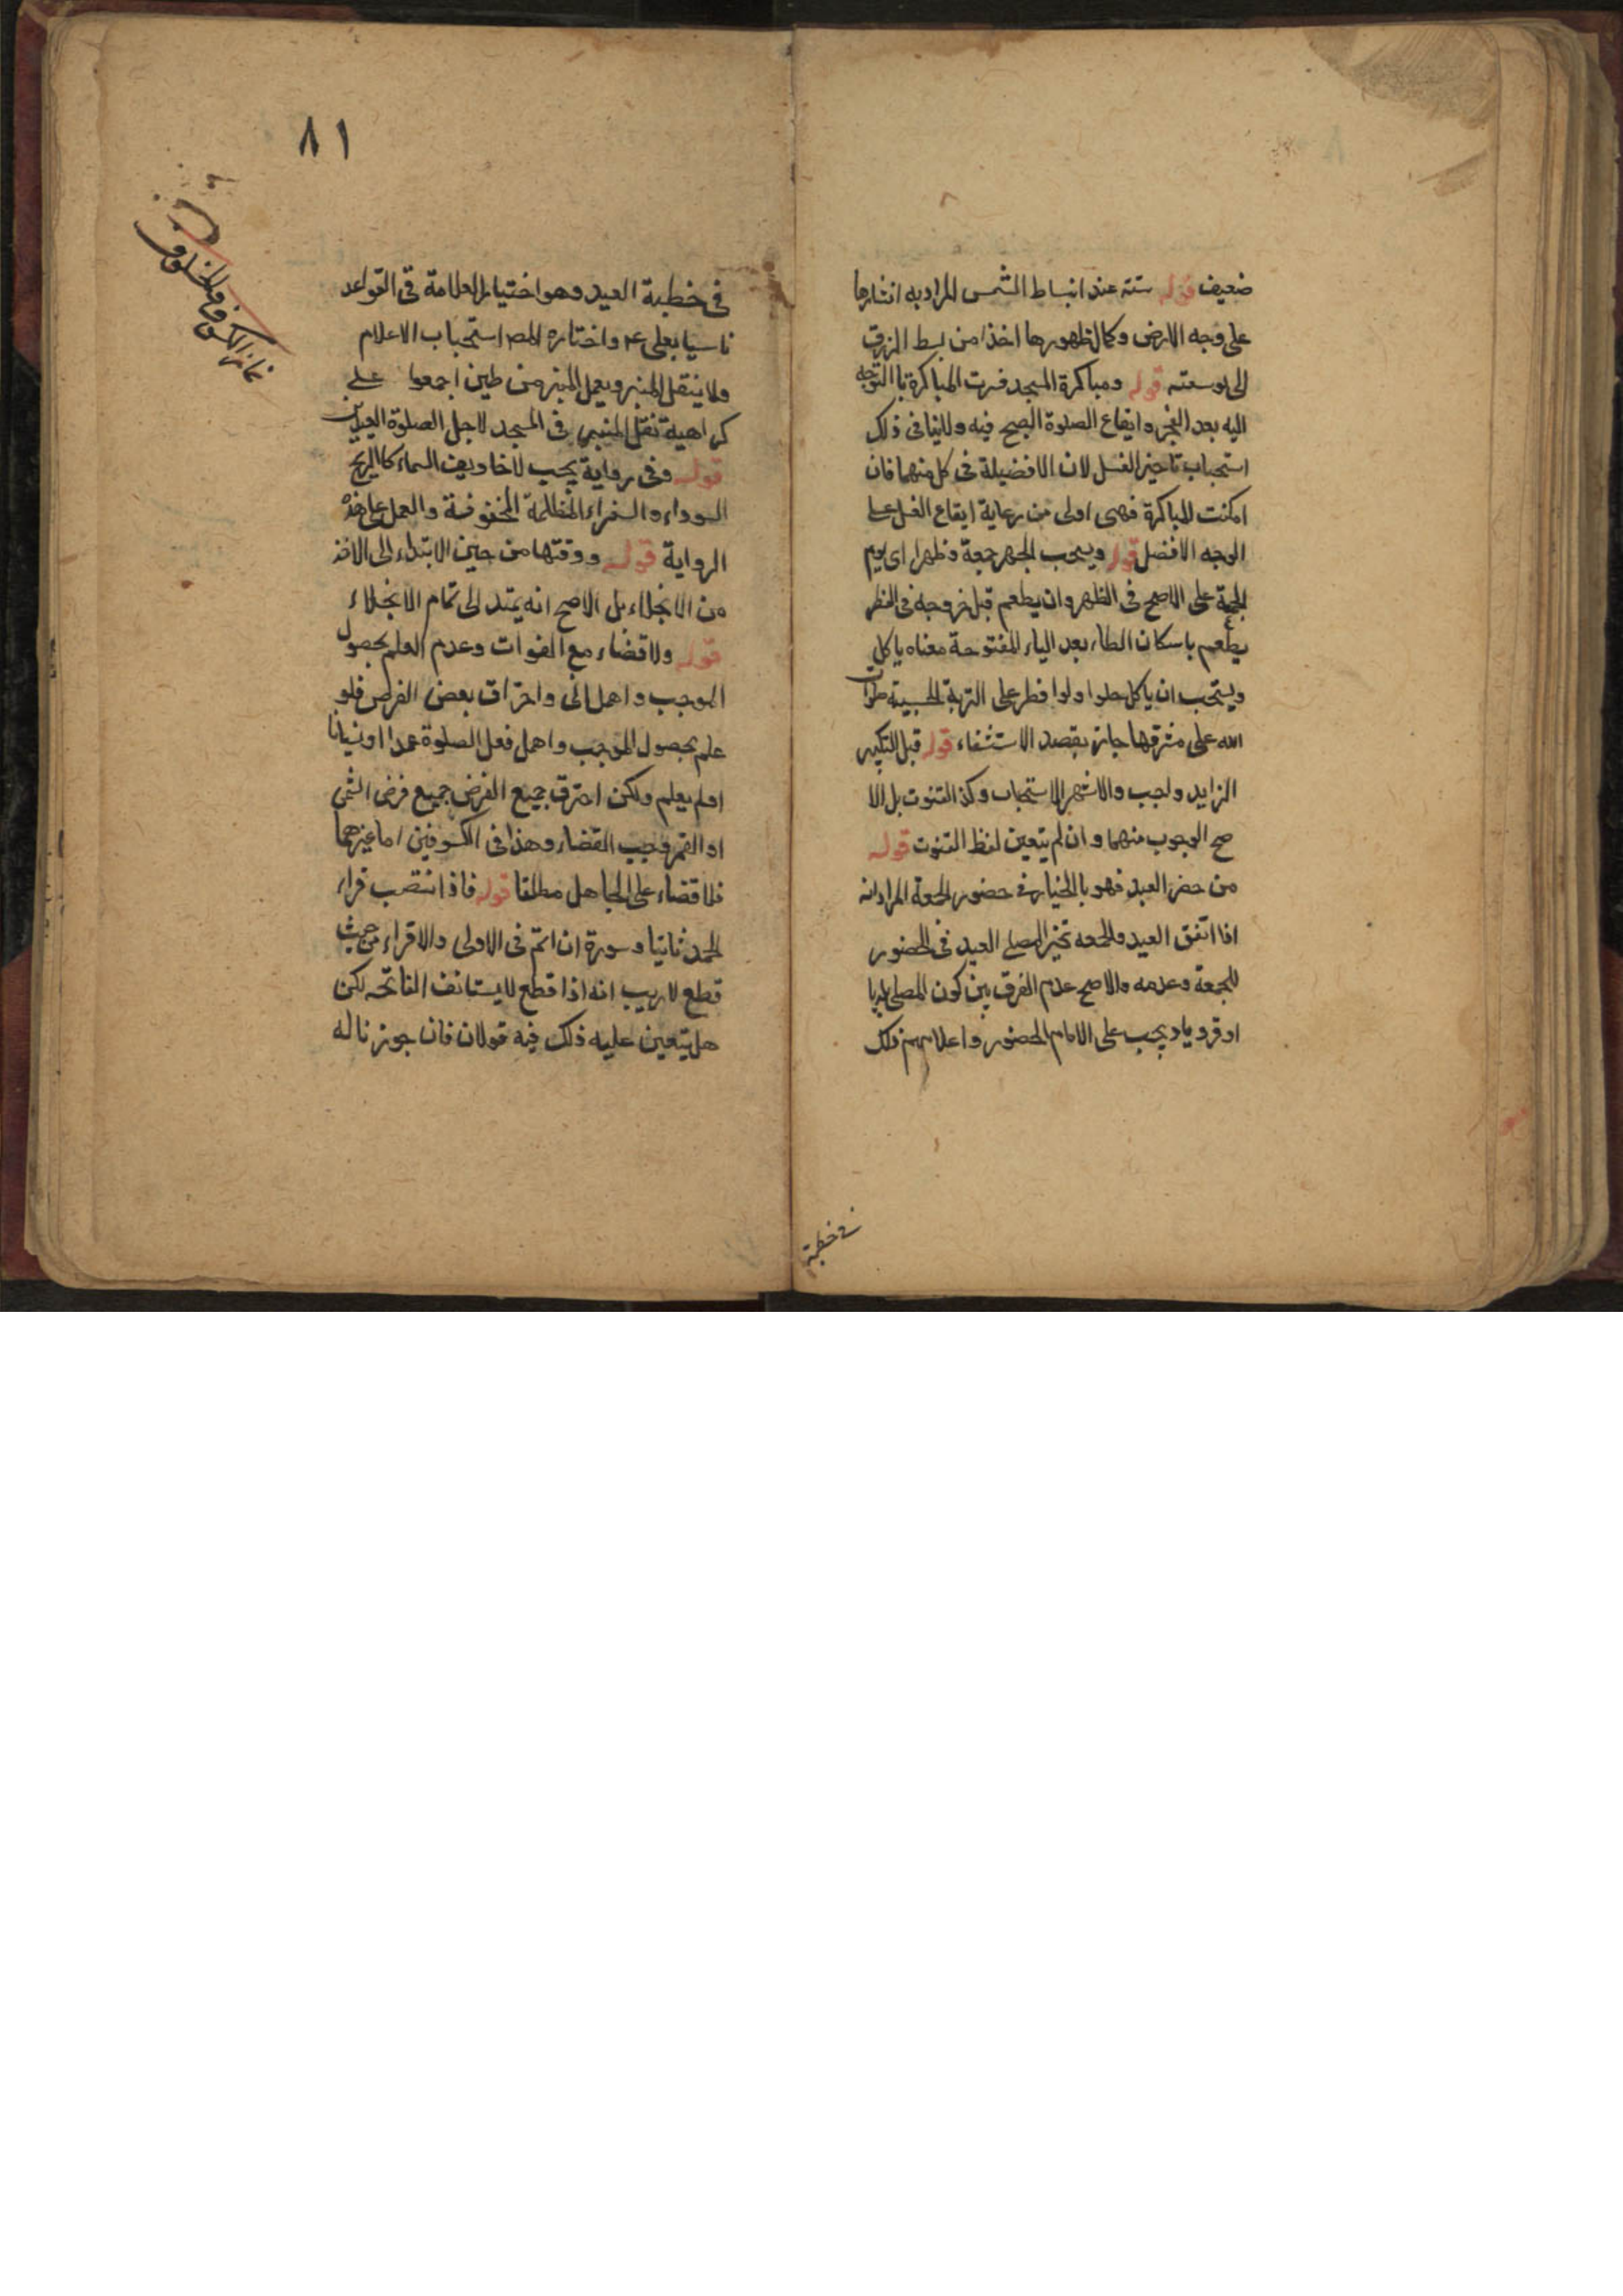 ضعيف قوله سته عند انبساط الشمس المراد به انتشارها
على وجه الارض وكمال ظهورها اخذا من بسط الرزق
الى توسعته قوله ومباكرة المسجد فسرت المباكرة باالتوجه
اليه بعد الفجر وايقاع الصلوة الصبح فيه ولاينافى ذلك
استحباب تاخير الغسل لان الافضيلة فى كل منهما فان
امكنت المباكرة فهى اولى من رعاية ايقاع الغسل على
الوجه الافضل قوله ويستحب الجهر جمعة وظهرا اى يوم
الجمعة على الاصح فى الظهر وان يطعم قبل خروجه فى الفطر
يطعم باسكان الطاء بعد الياء المفتوحة معناه ياكل
ويستحب ان ياكل حلوا ولو افطر على التربة الحسينية صلوات
الله على مشرفها جاز بقصد الاستشفاء قوله قبل التكبير
الزايد واجب والاشهر الاستحباب وكذا القنوت بل الا
صح الوجوب منهما وان لم يتعين لفظ القنوت قوله
من حضر العيد فهو بالخيار فى حضور الجمعة المراد انه
اذا اتفق العيد والجمعه تخير المصلى العيد فى الحضور
للجمعة وعدمه والاصح عدم الفرق بين كون المصلى بلديا
او قرويا ويجب على الامام الحضور واعلامهم ذلك
فى خطبة
٨١
نماز الكسوف والخسوف
فى خطبة العيد وهو اختيار العلامة فى القواعد
تاسيا بعلى ع م واختاره المص استحباب الاعلام
ولا ينقل المنبر ويعمل المنبر من طين اجمعوا على
كراهية نقل المنبر فى المسجد لاجل الصلوة العيدين
قوله وفى رواية يجب لاخاويف السماء كاالريح
السوداء والصفراء المظلمة المخوفة والعمل على هذه
الرواية قوله ووقتها من حين الابتداء الى الاخذ
من الانجلاء بل الاصح انه يمتد الى تمام الانجلاء
قوله ولا قضاء مع الفوات وعدم العلم بحصول
الموجب واهمل الى واحتراق بعض القرص فلو
علم بحصول الموجب واهمل فعل الصلوة عمدا او نسيانا
اولم يعلم ولكن احترق جميع القرض جميع قرض الشمس
او القمر فيجب القضاء وهذا فى الكسوفين اما غيرهما
فلا قضاء على الجاهل مطلقا قوله فاذا انتصب قراء
الحمد ثانيا وسورة ان اتم فى الاولى والاقراء من حيث
قطع لا ريب انه اذا قطع لايستانف الفاتحه لكن
هل يتعين عليه ذلك فيه قولان فان جوزنا له